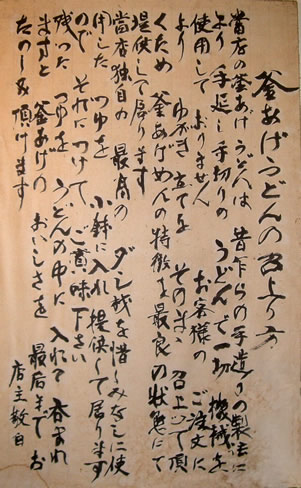 釜あげうどんの召上り方
当店の釜あげうどんは 昔乍らの手造りの製法に
より 手延し手切りの うどんで一切 機械を
使用して おりません お客様の ご注文に
より ゆがき 立てを そのまゝ 召上って頂
くため 釜あげめんの特徴を最良の状態にて
提供して居ります
当店独自の 最高の ダシ我を惜しみなしに使
用した つゆを 小鉢に入れ 提供して居ります
ので それにつけて ご賞味下さい
残った つゆを うどんの中に 入れて 呑まれ
ますと 釜あげの おいしさを 最后まで お
たのしみ頂けます
店主敬白